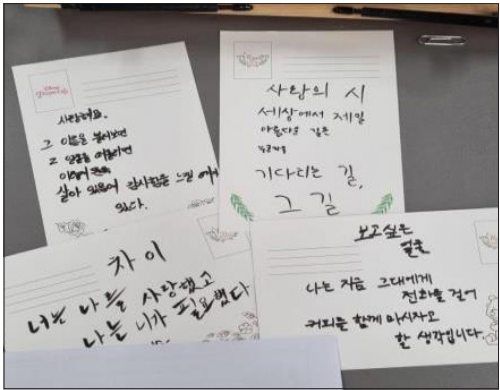 사랑해요.
그 이름을 불시보면
그 얼굴을 떠올리면
살아 있음에 감사함을 느낄
있다.
사랑의 시
세상에서 제일
아름다운 길은
누군가를
기다리는 길,
그 길
차이
너는 나를 사랑했고
나는 너가 필요했다
보고싶은
얼굴
나는 지금 그대에게
전화를 걸어
커피를 함께 마시자고
할 생각입니다